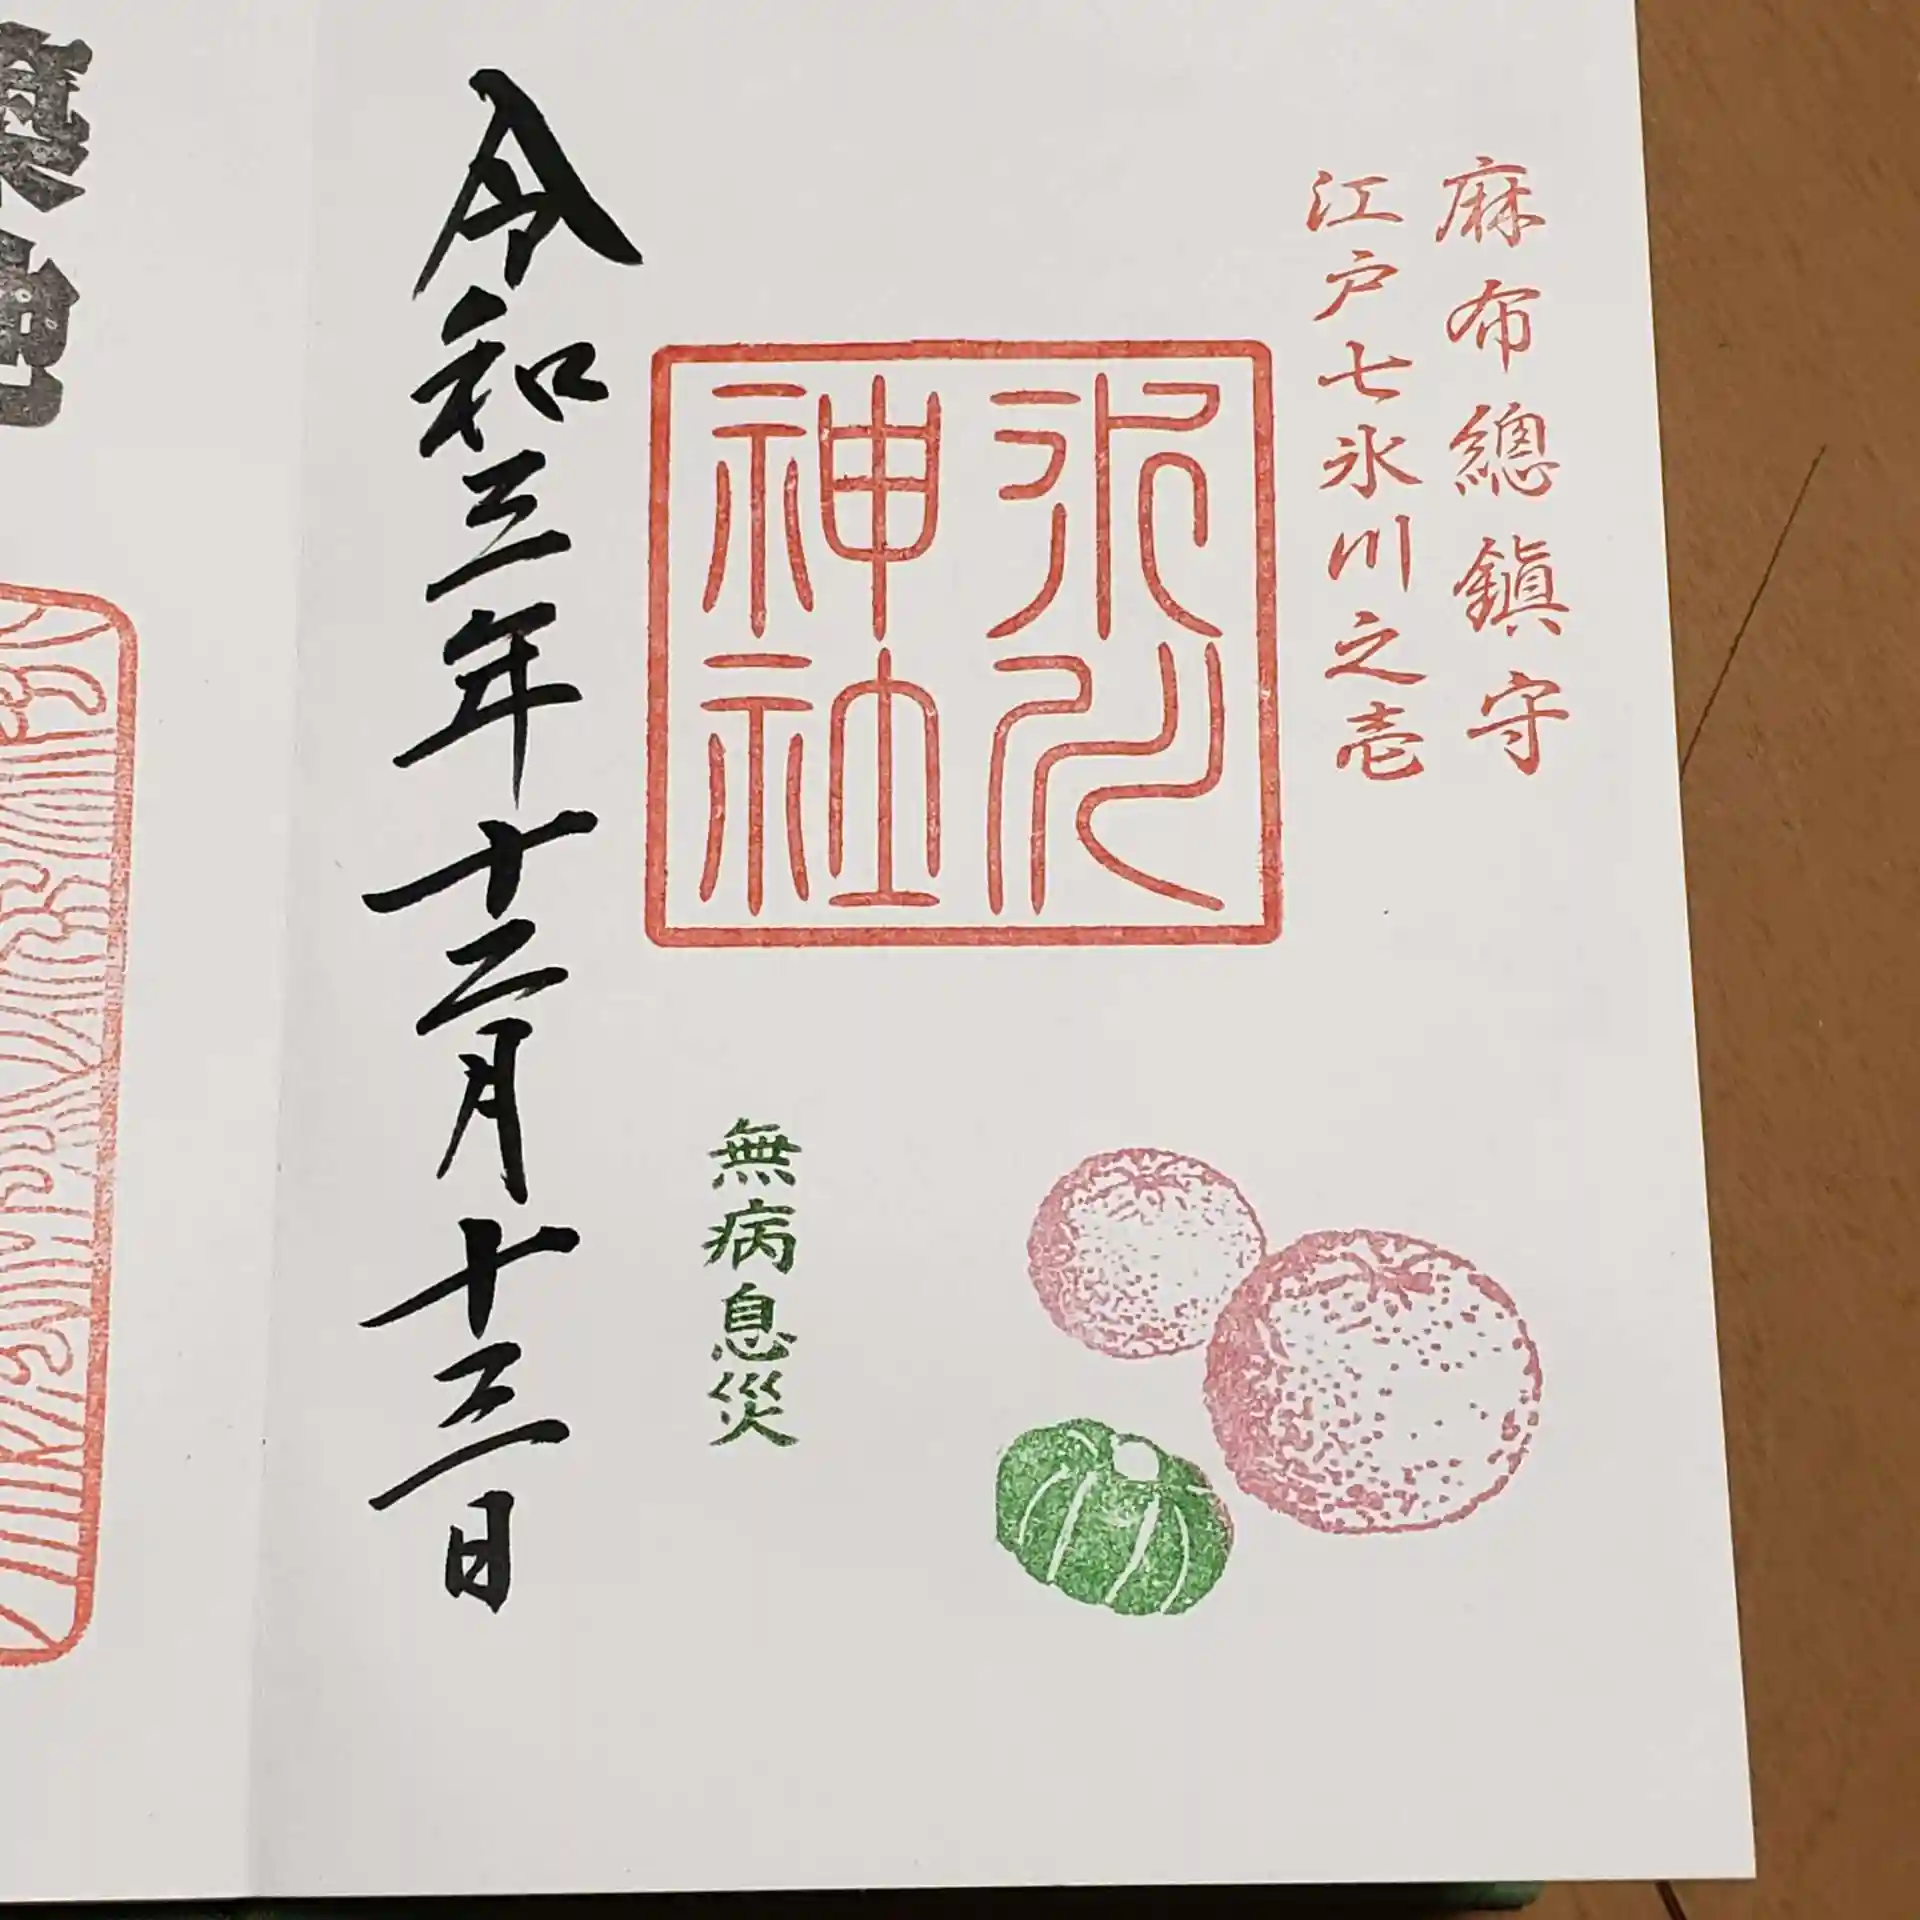 麻布總鎭守
江戸七氷川之壱
氷川
神社
無病息災
令和三年十二月十三日
築地